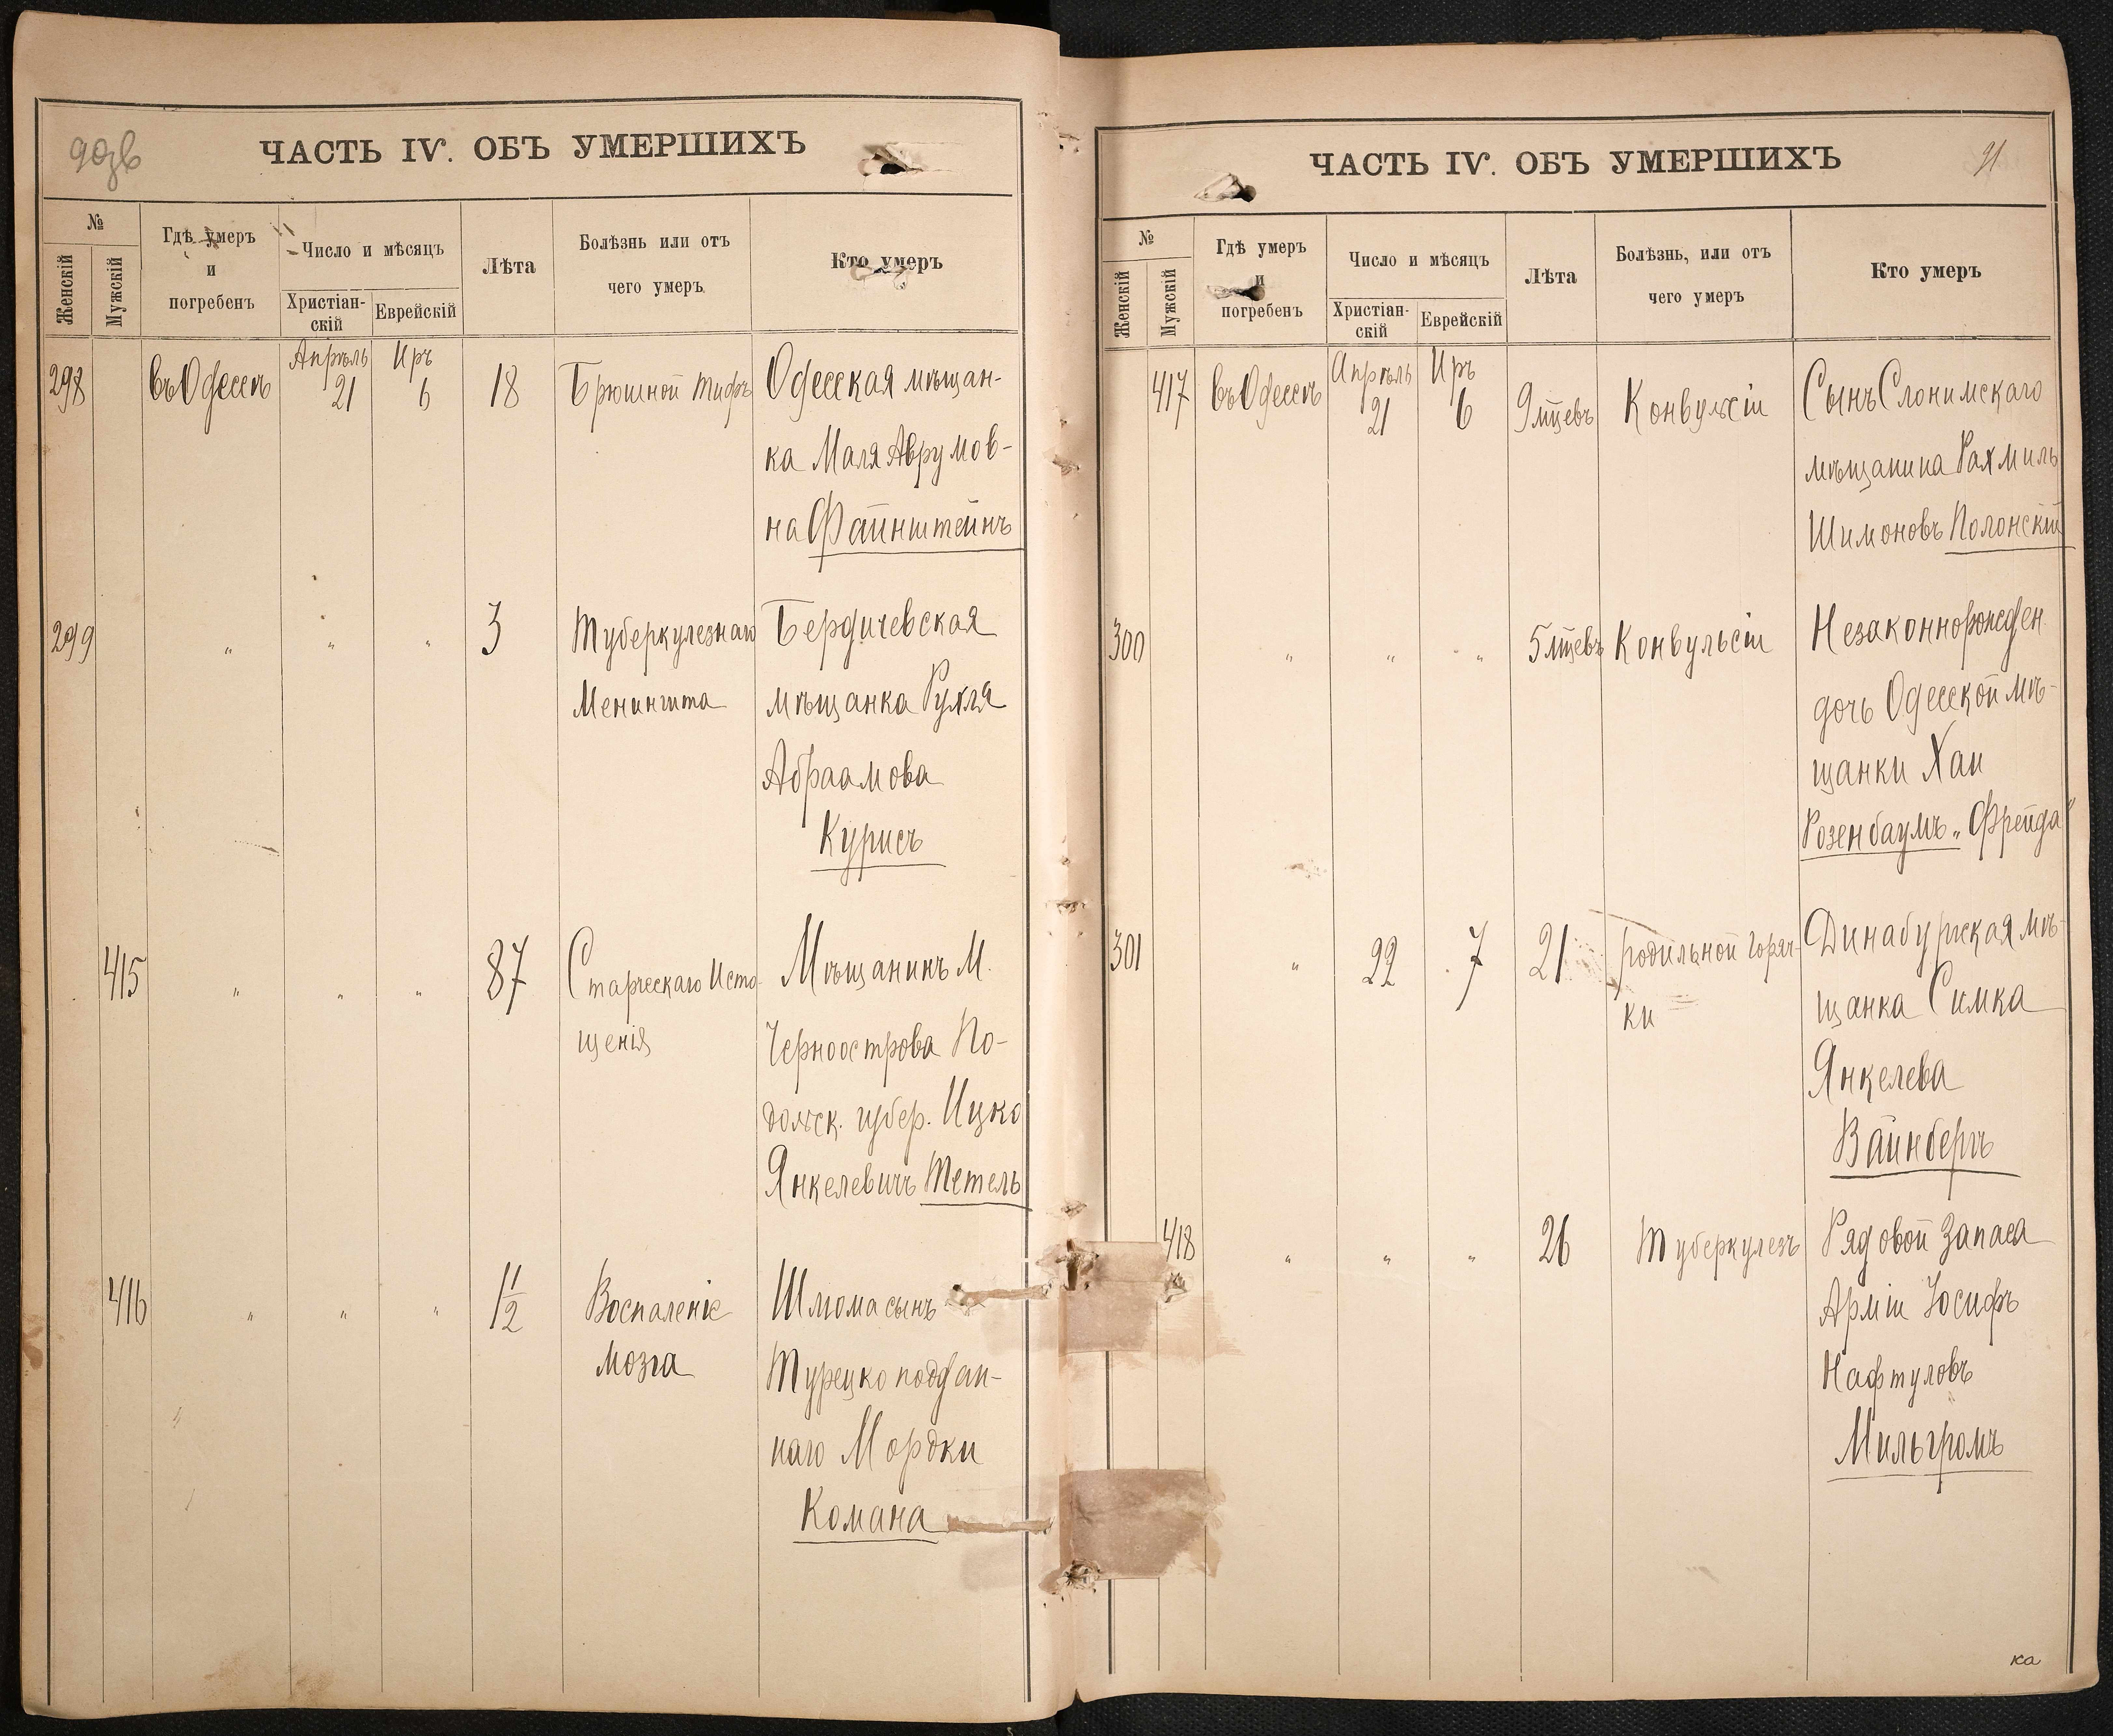 90зв
ЧАСТЬ IV. ОБЪ УМЕРШИХЪ
№
Женскій
Мужскій
Гдѣ умеръ
и
погребенъ
Число и мѣсяцъ
Христіан-
скій
Еврейскій
Лѣта
Болѣзнь или отъ
чего умеръ.
Кто умеръ
298 въ Одессѣ Апрѣль 21 Иръ 6 18 Брюшной тифъ Одесская мѣщан-
ка Маля Аврумов-
на Файнштейнъ
299 " " " 3 Туберкулезнаго Бердичевская
Менингита мѣщанка Рухля
Абраамова
Курисъ
415 " " " 87 Старческаго Исто- Мѣщанинъ М.
щенія Черноострова По-
дольск. губер. Ицко
Янкелевичъ Тетель
416 " " " 1 1/2 Воспаленіе Шлома сынъ
мозга Турецко поддан-
наго Мордки
Комана
ЧАСТЬ IV. ОБЪ УМЕРШИХЪ
91
№
Женскій
Мужскій
Гдѣ умеръ
и
погребенъ
Число и мѣсяцъ
Христіан-
скій
Еврейскій
Лѣта
Болѣзнь, или отъ
чего умеръ
Кто умеръ
417 въ Одессѣ Апрѣль 21 Иръ 6 9 мѣсцевъ Конвульсіи Сынъ Слонимскаго
мѣщанина Рахмиль
Шимоновъ Полонскій
300 " " " 5 мѣсцевъ Конвульсіи Незаконнорожден
дочь Одесской мѣ-
щанки Хаи
Розенбаумъ „Фрейда"
301 " 22 7 21 родильной горяч- Динабургская мѣ-
ки щанка Симка
Янкелева
Вайнбергъ
418 " " " 26 Туберкулезъ Рядовой Запаса
Арміи Іосифъ
Нафтуловъ
Мильгромъ
ка